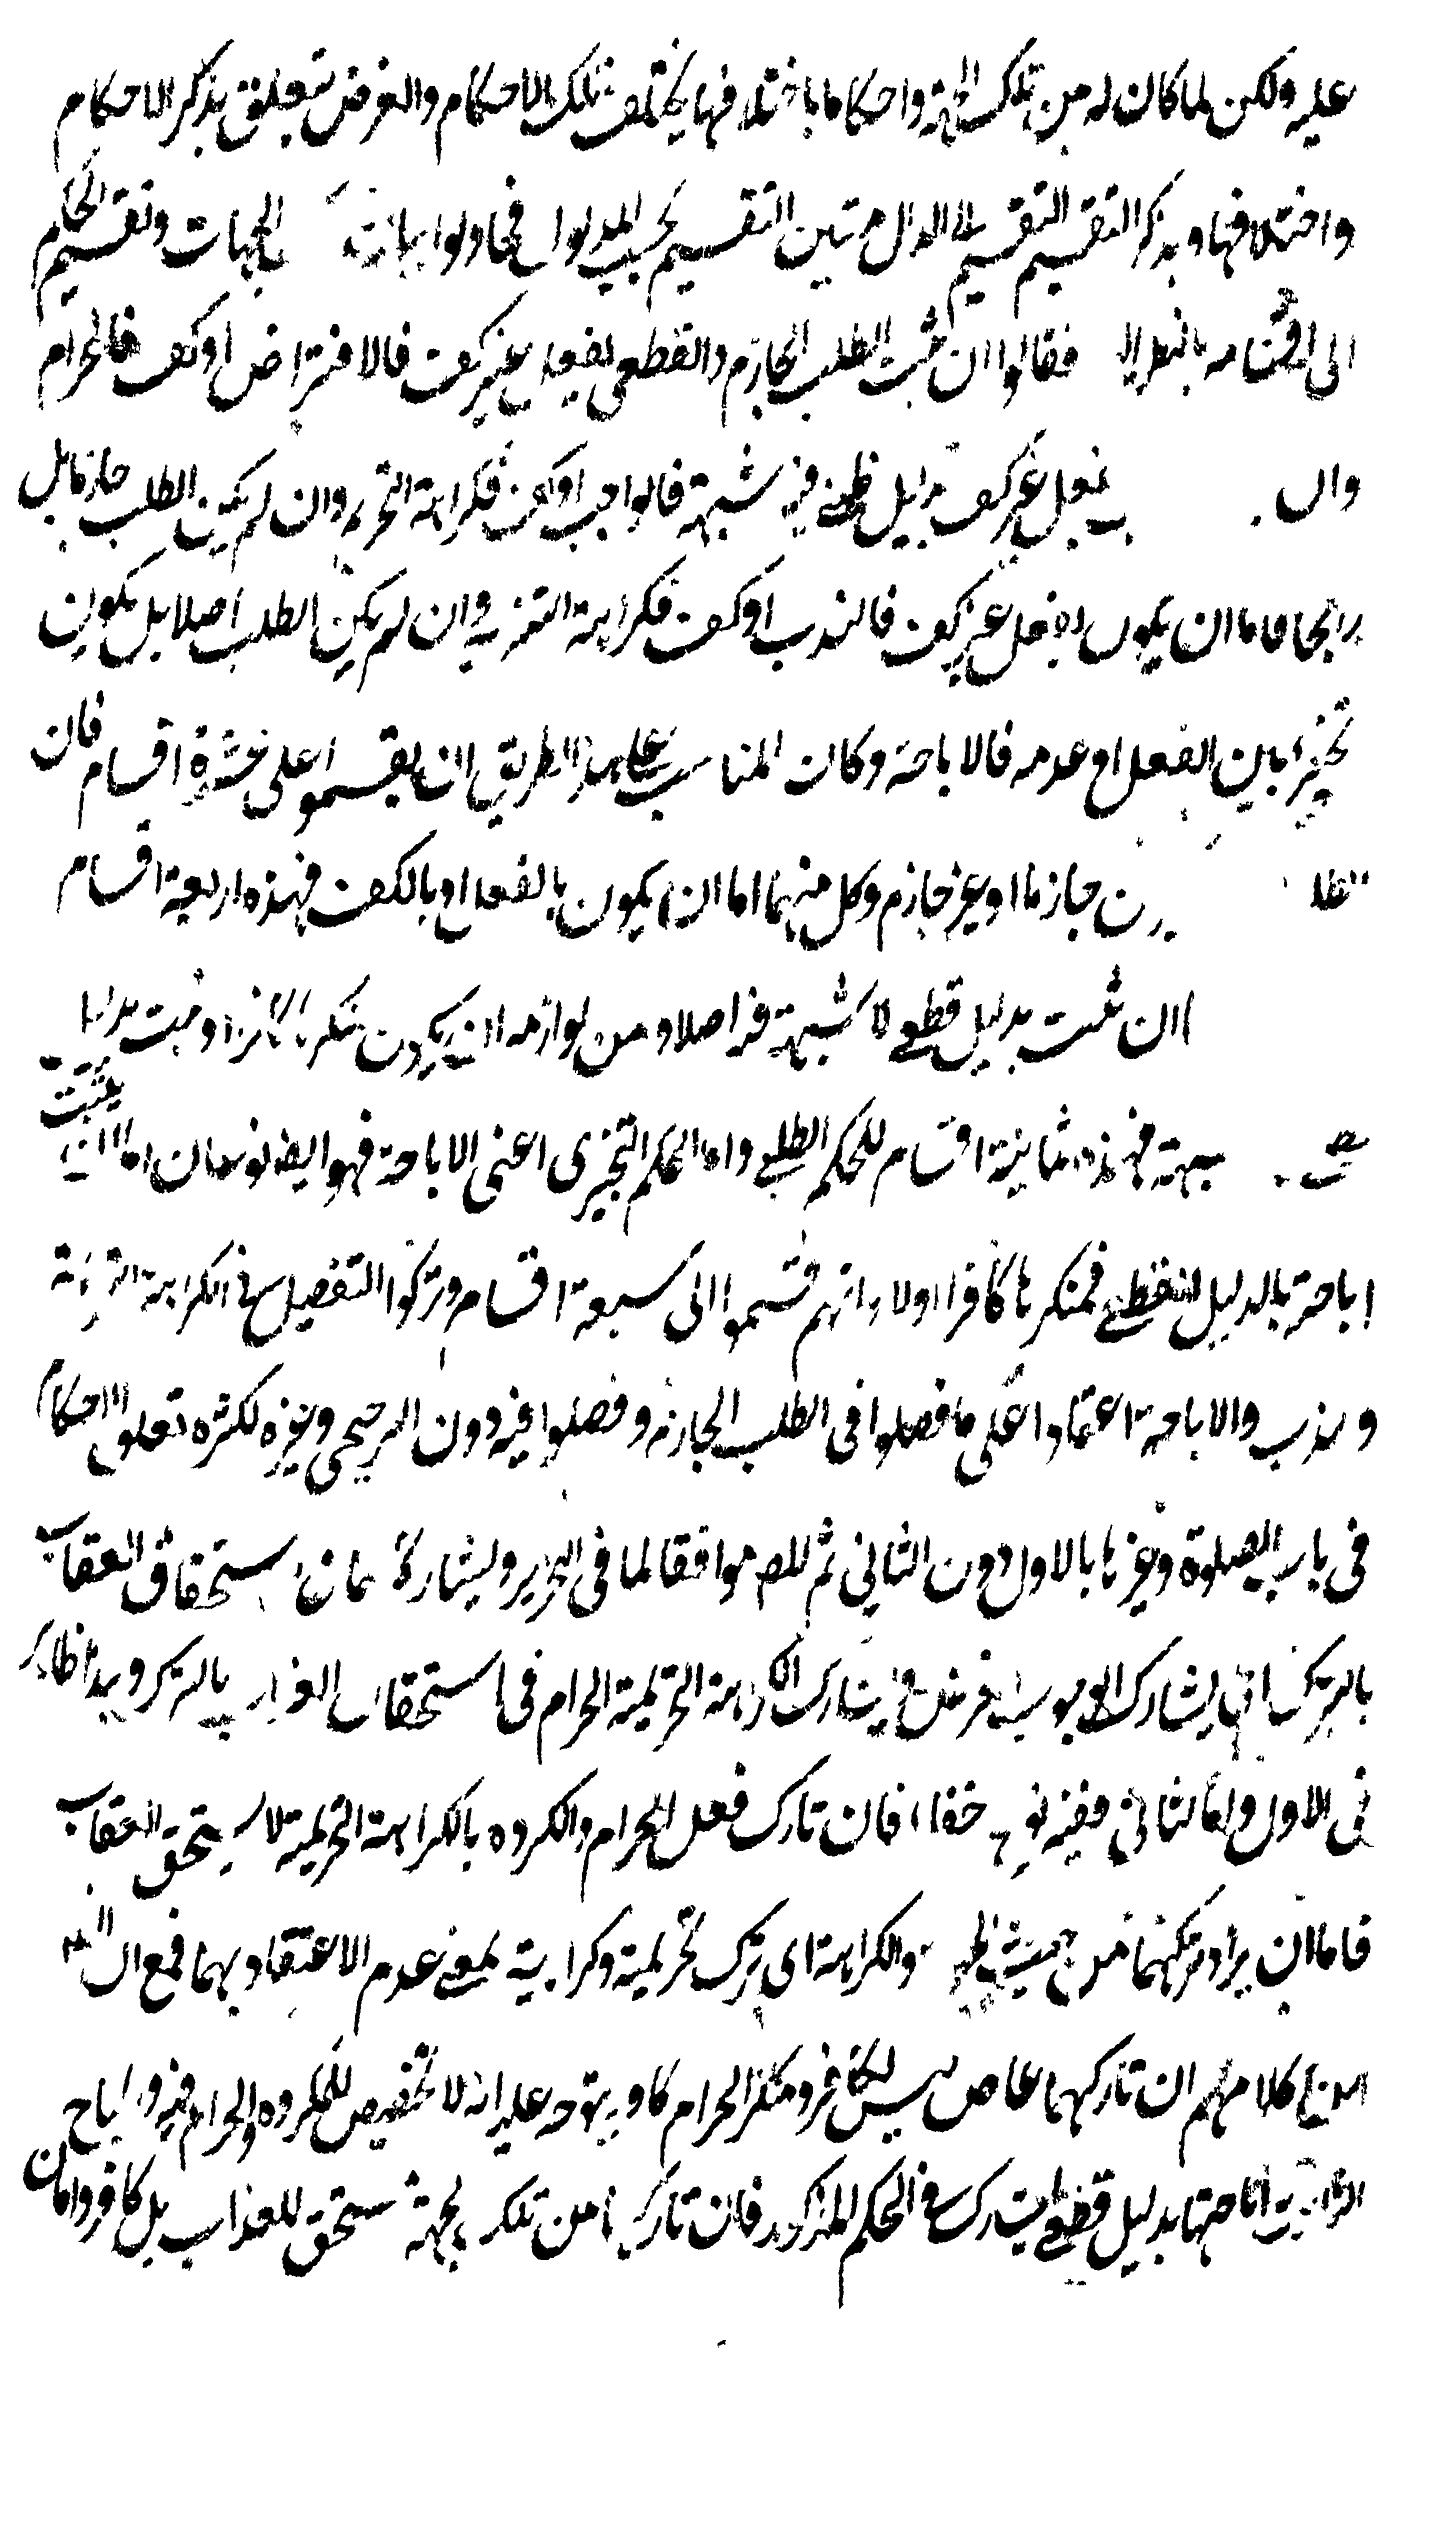 عليه ولكن لما كان له من تلك الجهة واحكاما باختلافها يختلف تلك الاحكام والغرض يتعلق بذكر الاحكام
واختلافها وبذكر التقسيم التقسيم الى الدال متبين التقسيم بحسب المدلول فحاولوا بيان الجهات وتقسيم الحكم
الى اقسامه فقالوا ان ثبت الطلب الجازم والقطعى لفعل غير كف فالافتراض او كف فالحرام
وان بفعل غير كف بدليل ظنى فيه شبهة فالواجب او كف فكراهة التحريم وان لم يكن الطلب جازما بل
راجحا فاما ان يكون لفعل غير كف فالندب او كف فكراهة التنزيه وان لم يكن الطلب اصلا بل يكون
تخييرا بين الفعل او عدمه فالاباحة وكان المناسب على هذا الطريق ان يقسموا على عشرة اقسام فان
الطلب جازما او غير جازم وكل منهما اما ان يكون بالفعل او بالكف فهذه اربعة اقسام
ان ثبت بدليل قطعى لا شبهة فيه اصلا ومن لوازمه ان يكون منكره كافرا او ثبت بدليل
شبهة فهذه ثمانية اقسام للحكم الطلبى واما الحكم التخييرى اعنى الاباحة فهو ايضا نوعان اما ان يثبت
اباحة بالدليل القطعى فمنكرها كافر اولا وانهم قسموا الى سبعة اقسام وتركوا التفصيل فى الكراهة التنزيهية
وندب والاباحة اعتمادا على ما فصلوا فى الطلب الجازم وفصلوا فيه دون الترجيحى وغيره لكثرة تعلق الاحكام
فى باب الصلوة وغيرها بالاول دون الثانى ثم للمص موافقا لما فى التحرير ويشاركه استحقاق العقاب
بالترك اى يشارك الوجوب الفرض ويشارك الكراهة التحريمية الحرام فى استحقاق العذاب بالترك وهذا ظاهر
فى الاول واما الثانى ففيه نوع خفاء فان تارك فعل الحرام والمكروه بالكراهة التحريمية لا يستحق العقاب
فاما ان يراد تركهما من حيث والكراهة اى ترك تحريمية وكراهية بمعنى عدم الاعتقاد بهما فمع
كلامهم ان تاركهما عاص ليس بكافر ومنكر الحرام كافر يتوجه عليه انه لا تخصيص للمكروه والحرام فيه والمباح
اباحتها بدليل قطعى يشارك فى الحكم المذكور فان تاركها من تلك الجهة مستحق للعذاب بل كافر واما ان